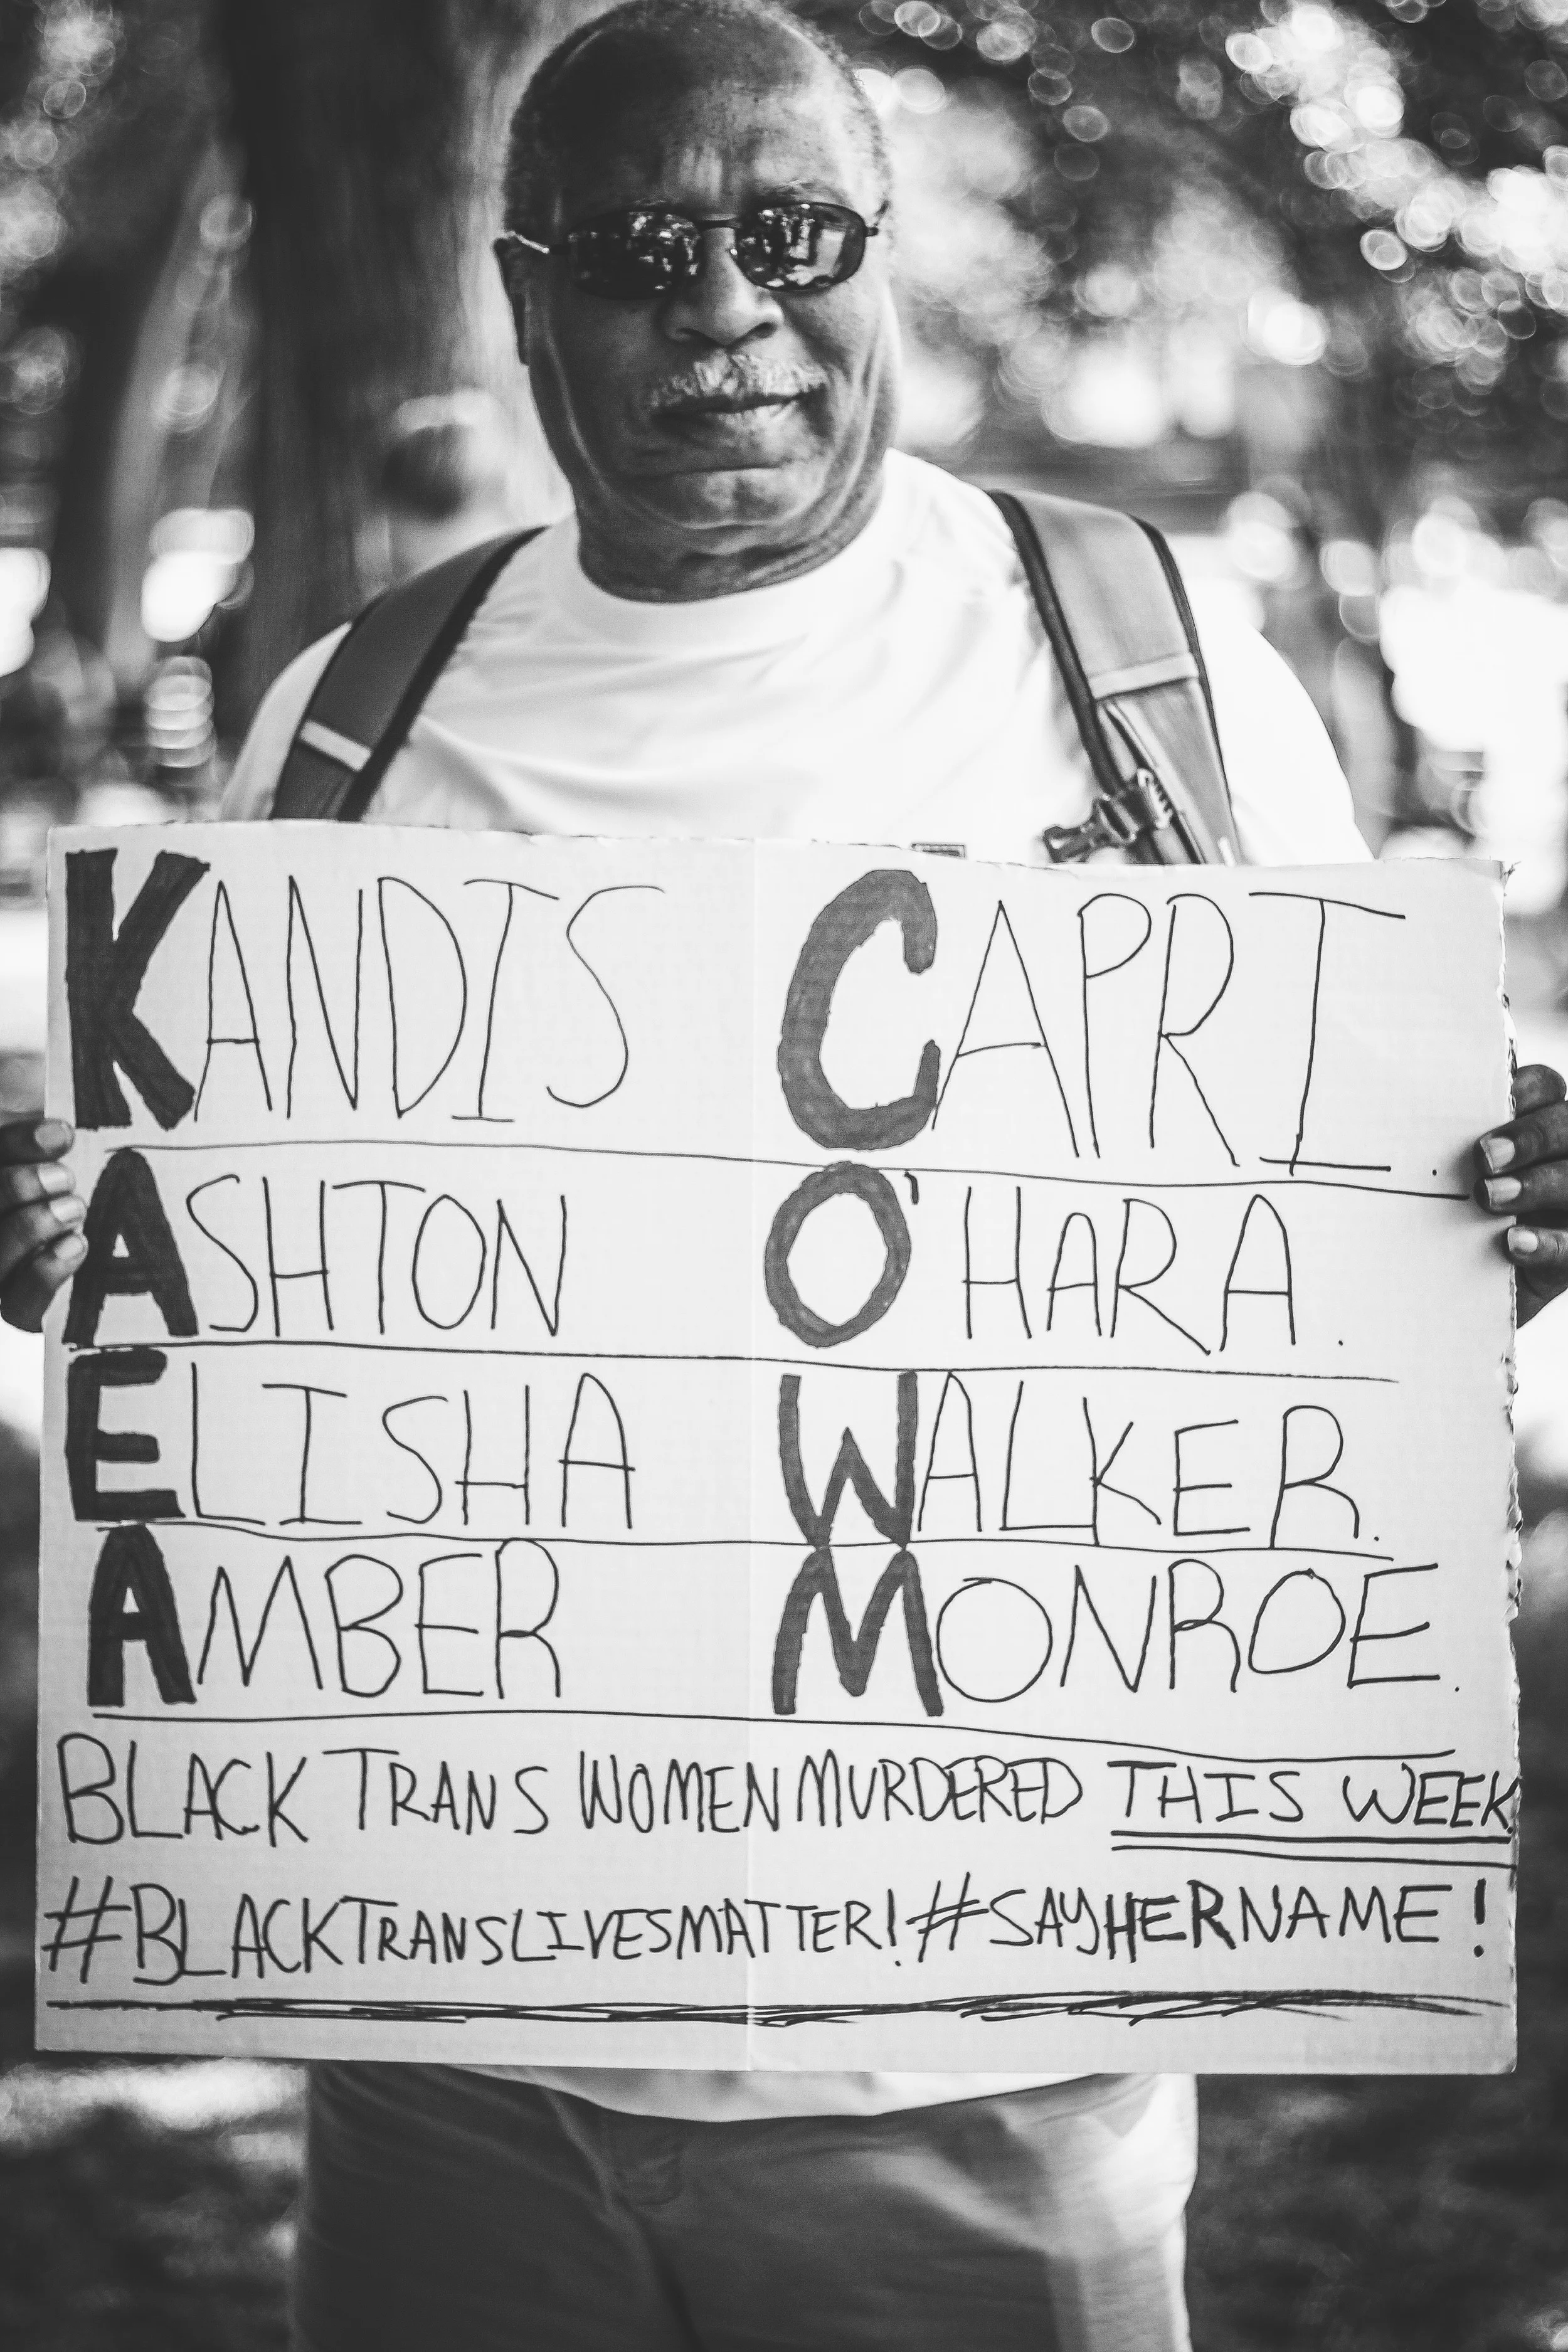 KANDIS CAPRI.
ASHTON O'HARA.
ELISHA WALKER.
AMBER MONROE.
BLACK TRANS WOMEN MURDERED THIS WEEK.
#BLACKTRANSLIVESMATTER! #SAYHERNAME!